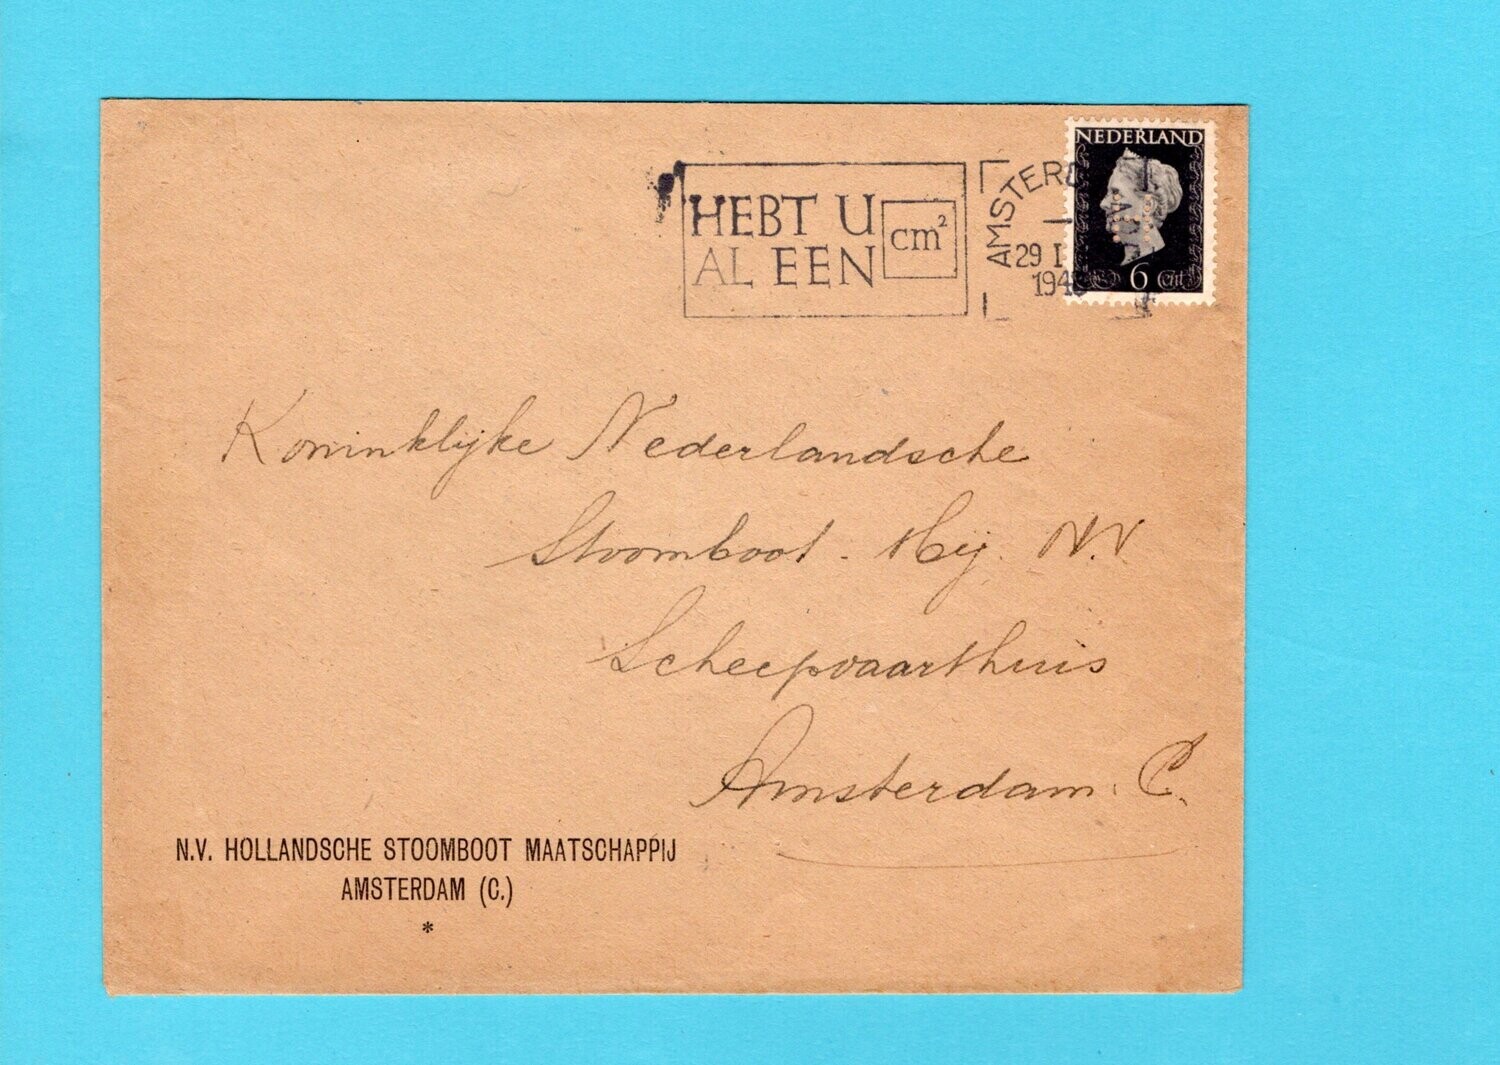 NEDERLAND
HEBT U
AL EEN
cm²
AMSTERD
29 I
194
6 Cent
Koninklijke Nederlandsche
Stoomboot - Mij. N.V.
Scheepvaarthuis
Amsterdam. C.
N.V. HOLLANDSCHE STOOMBOOT MAATSCHAPPIJ
AMSTERDAM (C.)
*